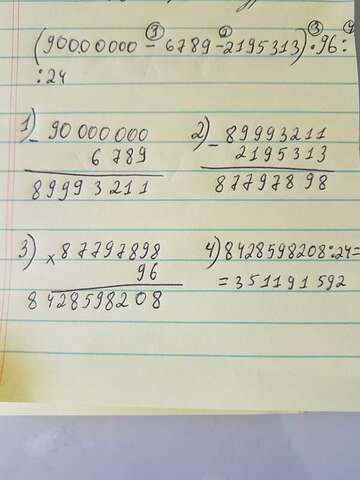 ① ② ③ ④
(90000000 - 6789 - 2195313) · 96 :
: 24
1) - 90 000 000
6 789
8 999 3 211
2) - 89993211
2195313
87797898
3) × 87797898
96
8 428598208
4) 8428598208 : 24 =
= 351191592